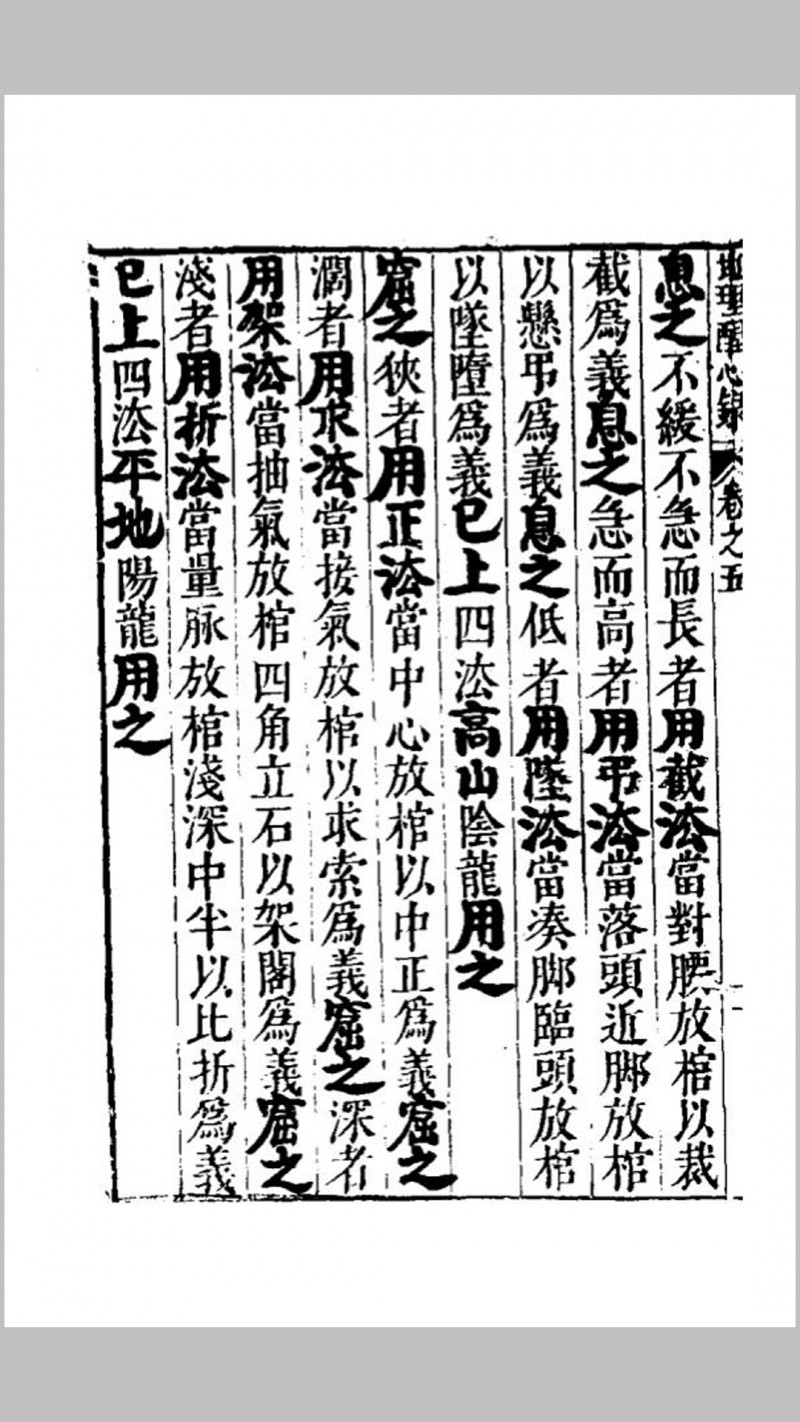 地理醒心錄 卷之五
息之不緩不急而長者用截法當對腰放棺以裁
截爲義息之急而高者用弔法當落頭近脚放棺
以懸弔爲義息之低者用墜法當湊脚臨頭放棺
以墜墮爲義已上四法高山陰龍用之
窟之狹者用正法當中心放棺以中正爲義窟之
濶者用求法當接氣放棺以求索爲義窟之深者
用架法當抽氣放棺四角立石以架閣爲義窟之
淺者用折法當量脉放棺淺深中半以比折爲義
已上四法平地陽龍用之